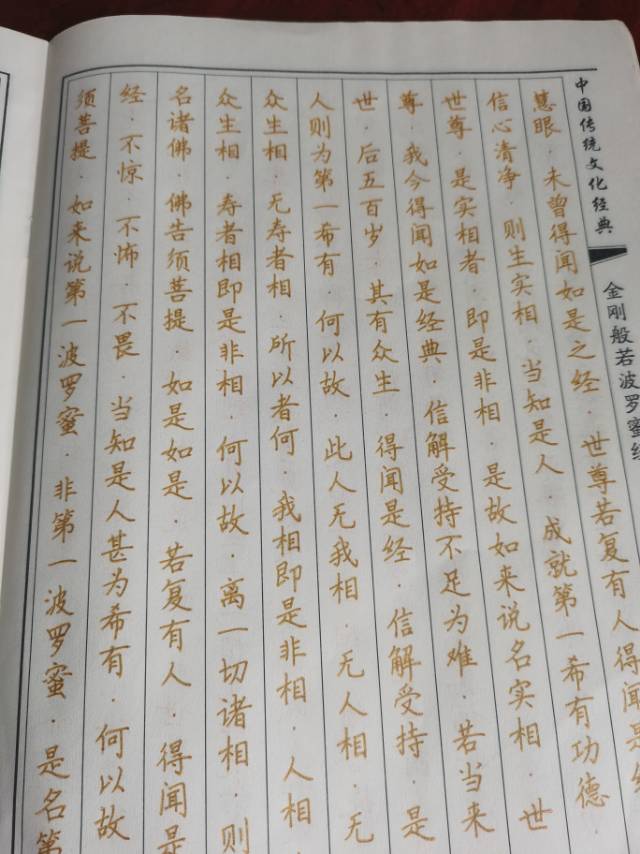 中国传统文化经典
金刚般若波罗蜜经
慧眼·未曾得闻如是之经·世尊若复有人得闻是经
信心清净·则生实相·当知是人·成就第一希有功德
世尊·是实相者·即是非相·是故如来说名实相·世
尊·我今得闻如是经典·信解受持不足为难·若当来
世·后五百岁·其有众生·得闻是经·信解受持·是
人则为第一希有·何以故·此人无我相·无人相·无
众生相·无寿者相·所以者何·我相即是非相·人相
众生相·寿者相即是非相·何以故·离一切诸相·则
名诸佛·佛告须菩提·如是如是·若复有人·得闻是
经·不惊·不怖·不畏·当知是人甚为希有·何以故
须菩提·如来说第一波罗蜜·非第一波罗蜜·是名第